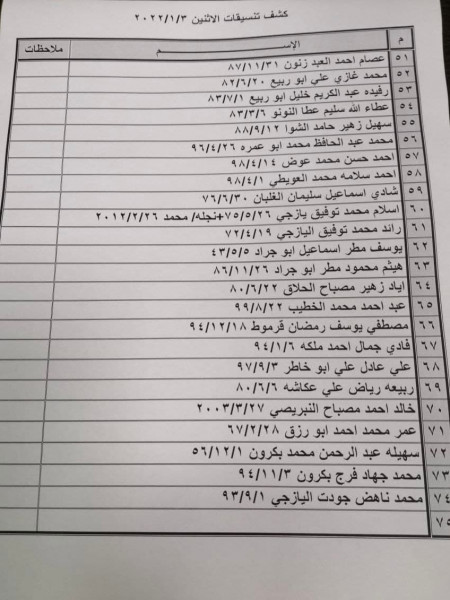 كشف تنسيقات الاثنين ٢٠٢٢/١/٣
م الاســـــم ملاحظات
٥١ عصام احمد العبد زنون ٨٧/١١/٣١
٥٢ محمد غازي علي ابو ربيع ٨٢/٦/٢٠
٥٣ رفيده عبد الكريم خليل ابو ربيع ٨٣/٧/١
٥٤ عطاء الله سليم عطا النونو ٨٣/٣/٦
٥٥ سهيل زهير حامد الشوا ٨٨/٩/١٢
٥٦ محمد عبد الحافظ محمد ابو عمره ٩٦/٤/٢٦
٥٧ احمد حسن محمد عوض ٩٨/٤/١٤
٥٨ احمد سلامه محمد العويطي ٩٨/٤/١
٥٩ شادي اسماعيل سليمان الغلبان ٧٦/٦/٣٠
٦٠ اسلام محمد توفيق يازجي ٧٥/٥/٢٦+نجله/ محمد ٢٠١٢/٢/٢٦
٦١ رائد محمد توفيق اليازجي ٧٢/٤/١٩
٦٢ يوسف مطر اسماعيل ابو جراد ٤٣/٥/٥
٦٣ هيثم محمود مطر ابو جراد ٨٦/١١/٢٦
٦٤ اياد زهير مصباح الحلاق ٨٠/٦/٢٢
٦٥ عبد احمد محمد الخطيب ٩٩/٨/٢٢
٦٦ مصطفي يوسف رمضان قرموط ٩٤/١٢/١٨
٦٧ فادي جمال احمد ملكه ٩٤/١/٦
٦٨ علي عادل علي ابو خاطر ٩٧/٩/٣
٦٩ ربيعه رياض علي عكاشه ٨٠/٦/٦
٧٠ خالد احمد مصباح النبريصي ٢٠٠٣/٣/٢٧
٧١ عمر محمد احمد ابو رزق ٦٧/٢/٢٨
٧٢ سهيله عبد الرحمن محمد بكرون ٥٦/١٢/١
٧٣ محمد جهاد فرج بكرون ٩٤/١١/٣
٧٤ محمد ناهض جودت اليازجي ٩٣/٩/١
٧٥